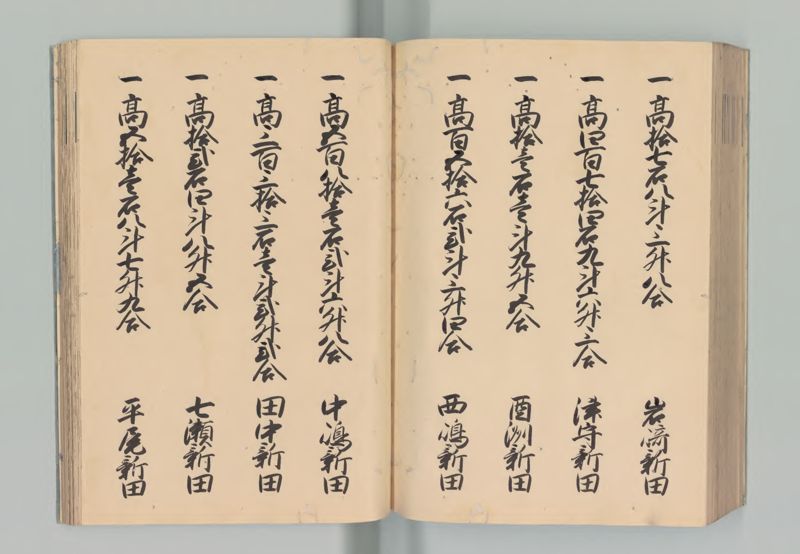 一 高拾七石八斗三升八合 岩崎新田
一 高四百七拾四石九斗六升三合 津守新田
一 高拾壱石壱斗九升五合 酉洲新田
一 高百五拾六石弐斗三升四合 西嶋新田
一 高五百八拾壱石弐斗六升八合 中嶋新田
一 高三百三拾三石壱斗弐升弐合 田中新田
一 高拾弐石四斗八升五合 七瀬新田
一 高五拾壱石八斗七升九合 平尾新田